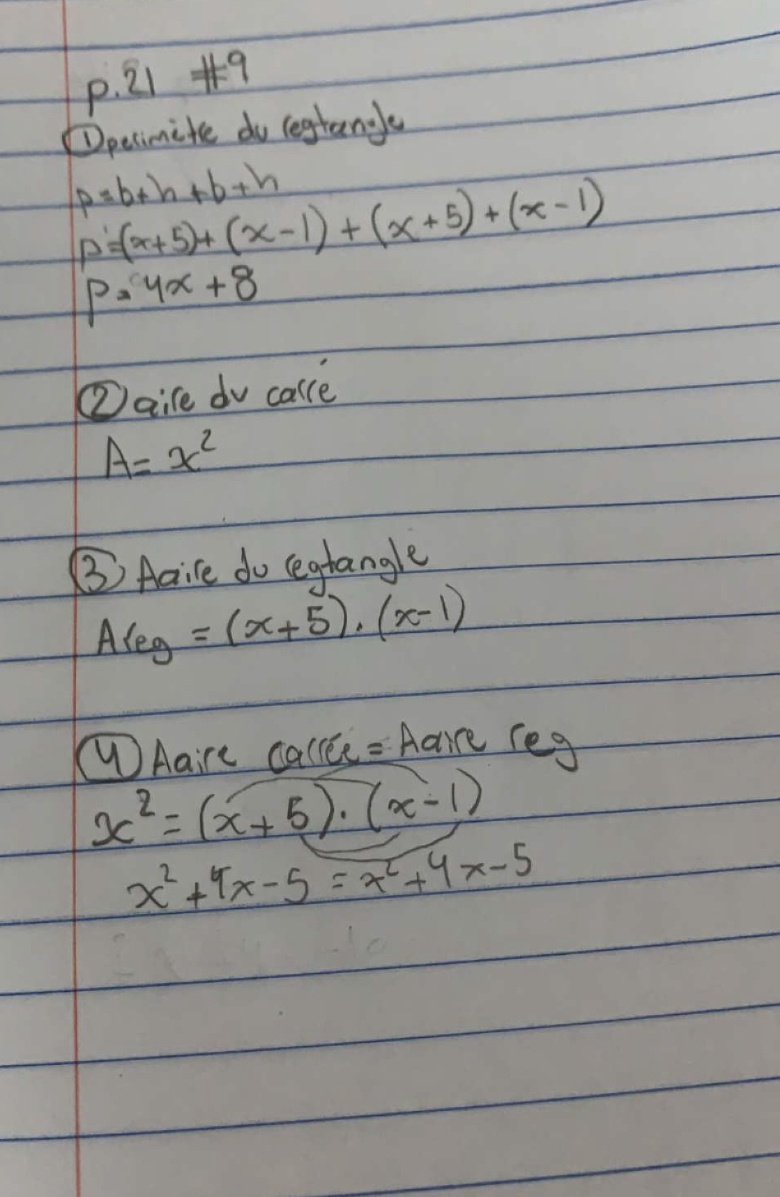 p.21 #9
① perimètre du regtangle
p=b+h+b+h
p=(x+5)+(x-1)+(x+5)+(x-1)
p=4x+8
② aire du carré
A=x²
③ Aaire du regtangle
Areg=(x+5).(x-1)
④ Aaire carrée=Aaire reg
x²=(x+5).(x-1)
x²+4x-5=x²+4x-5